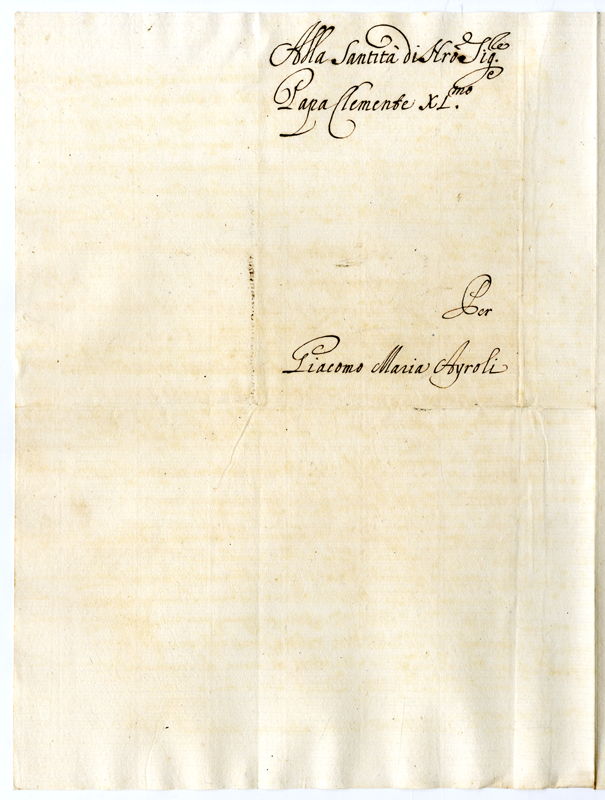 Alla Santità di Nrõ Sig.re
Papa Clemente XI.mo
Per
Giacomo Maria Ayroli